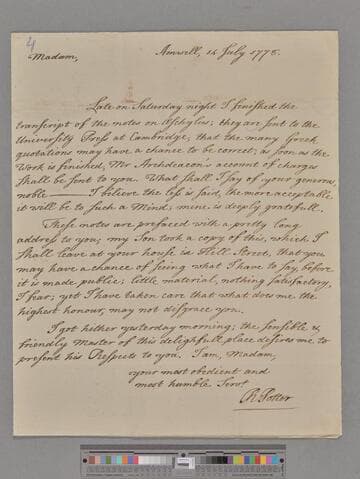 4
Amwell, 14 July 1778.
Madam,
Late on Saturday night I finished the
transcript of the notes on Æschylus; they are sent to the
University Press at Cambridge, that the many Greek
quotations may have a chance to be correct; as soon as the
Work is finished, Mr Archdeacon's account of charges
shall be sent to you. What shall I say of your generous
noble I believe the less is said, the more acceptable
it will be to such a Mind; mine is deeply gratefull.
These notes are prefaced with a pretty long
address to you; my Son took a copy of this, which I
shall leave at your house in Hill Street, that you
may have a chance of seeing what I have to say, before
it is made public; little material, nothing satisfactory,
I fear; yet I have taken care that what does me the
highest honour, may not disgrace you.
I got hither yesterday morning; the sensible &
friendly Master of this delightfull place desires me to
present his Respects to you. I am, Madam,
your most obedient and
most humble Servt
R. Potter